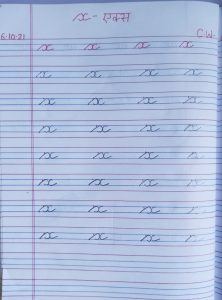 x - एक्स
6-10-21 C.W.
x x x x
x x x x
x x x x
x x x x
x x x x
x x x x
x x x x
x x x x